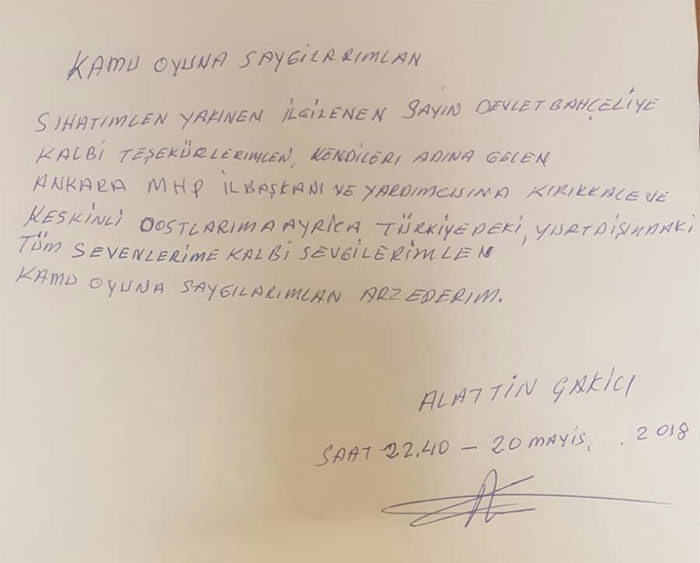 KAMU OYUNA SAYGILARIMLAN
SIHATIMLEN YAKINEN İLGİLENEN SAYIN DEVLET BAHÇELİYE
KALBİ TEŞEKÜRLERİMLEN, KENDİLERİ ADINA GELEN
ANKARA MHP İL BAŞKANI VE YARDIMCISINA KIRIKKALE VE
KESKİNLİ DOSTLARIMA AYRICA TÜRKİYEDEKİ, YURTDIŞINDAKİ
TÜM SEVENLERİME KALBİ SEVGİLERİMLEN
KAMU OYUNA SAYGILARIMLAN ARZEDERİM.
ALATTİN ÇAKICI
SAAT 22.40 – 20 MAYIS. . 2018